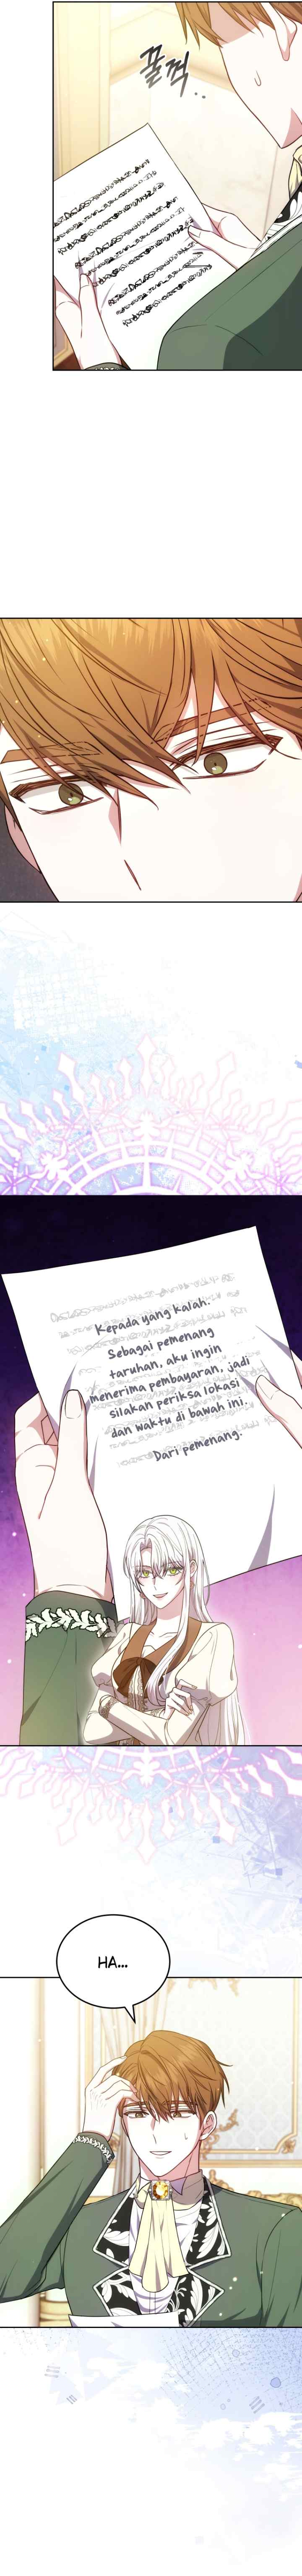 꿀꺽..
Kepada yang kalah.
Sebagai pemenang
taruhan, aku ingin
menerima pembayaran, jadi
silakan periksa lokasi
dan waktu di bawah ini.
Dari pemenang.
HA...